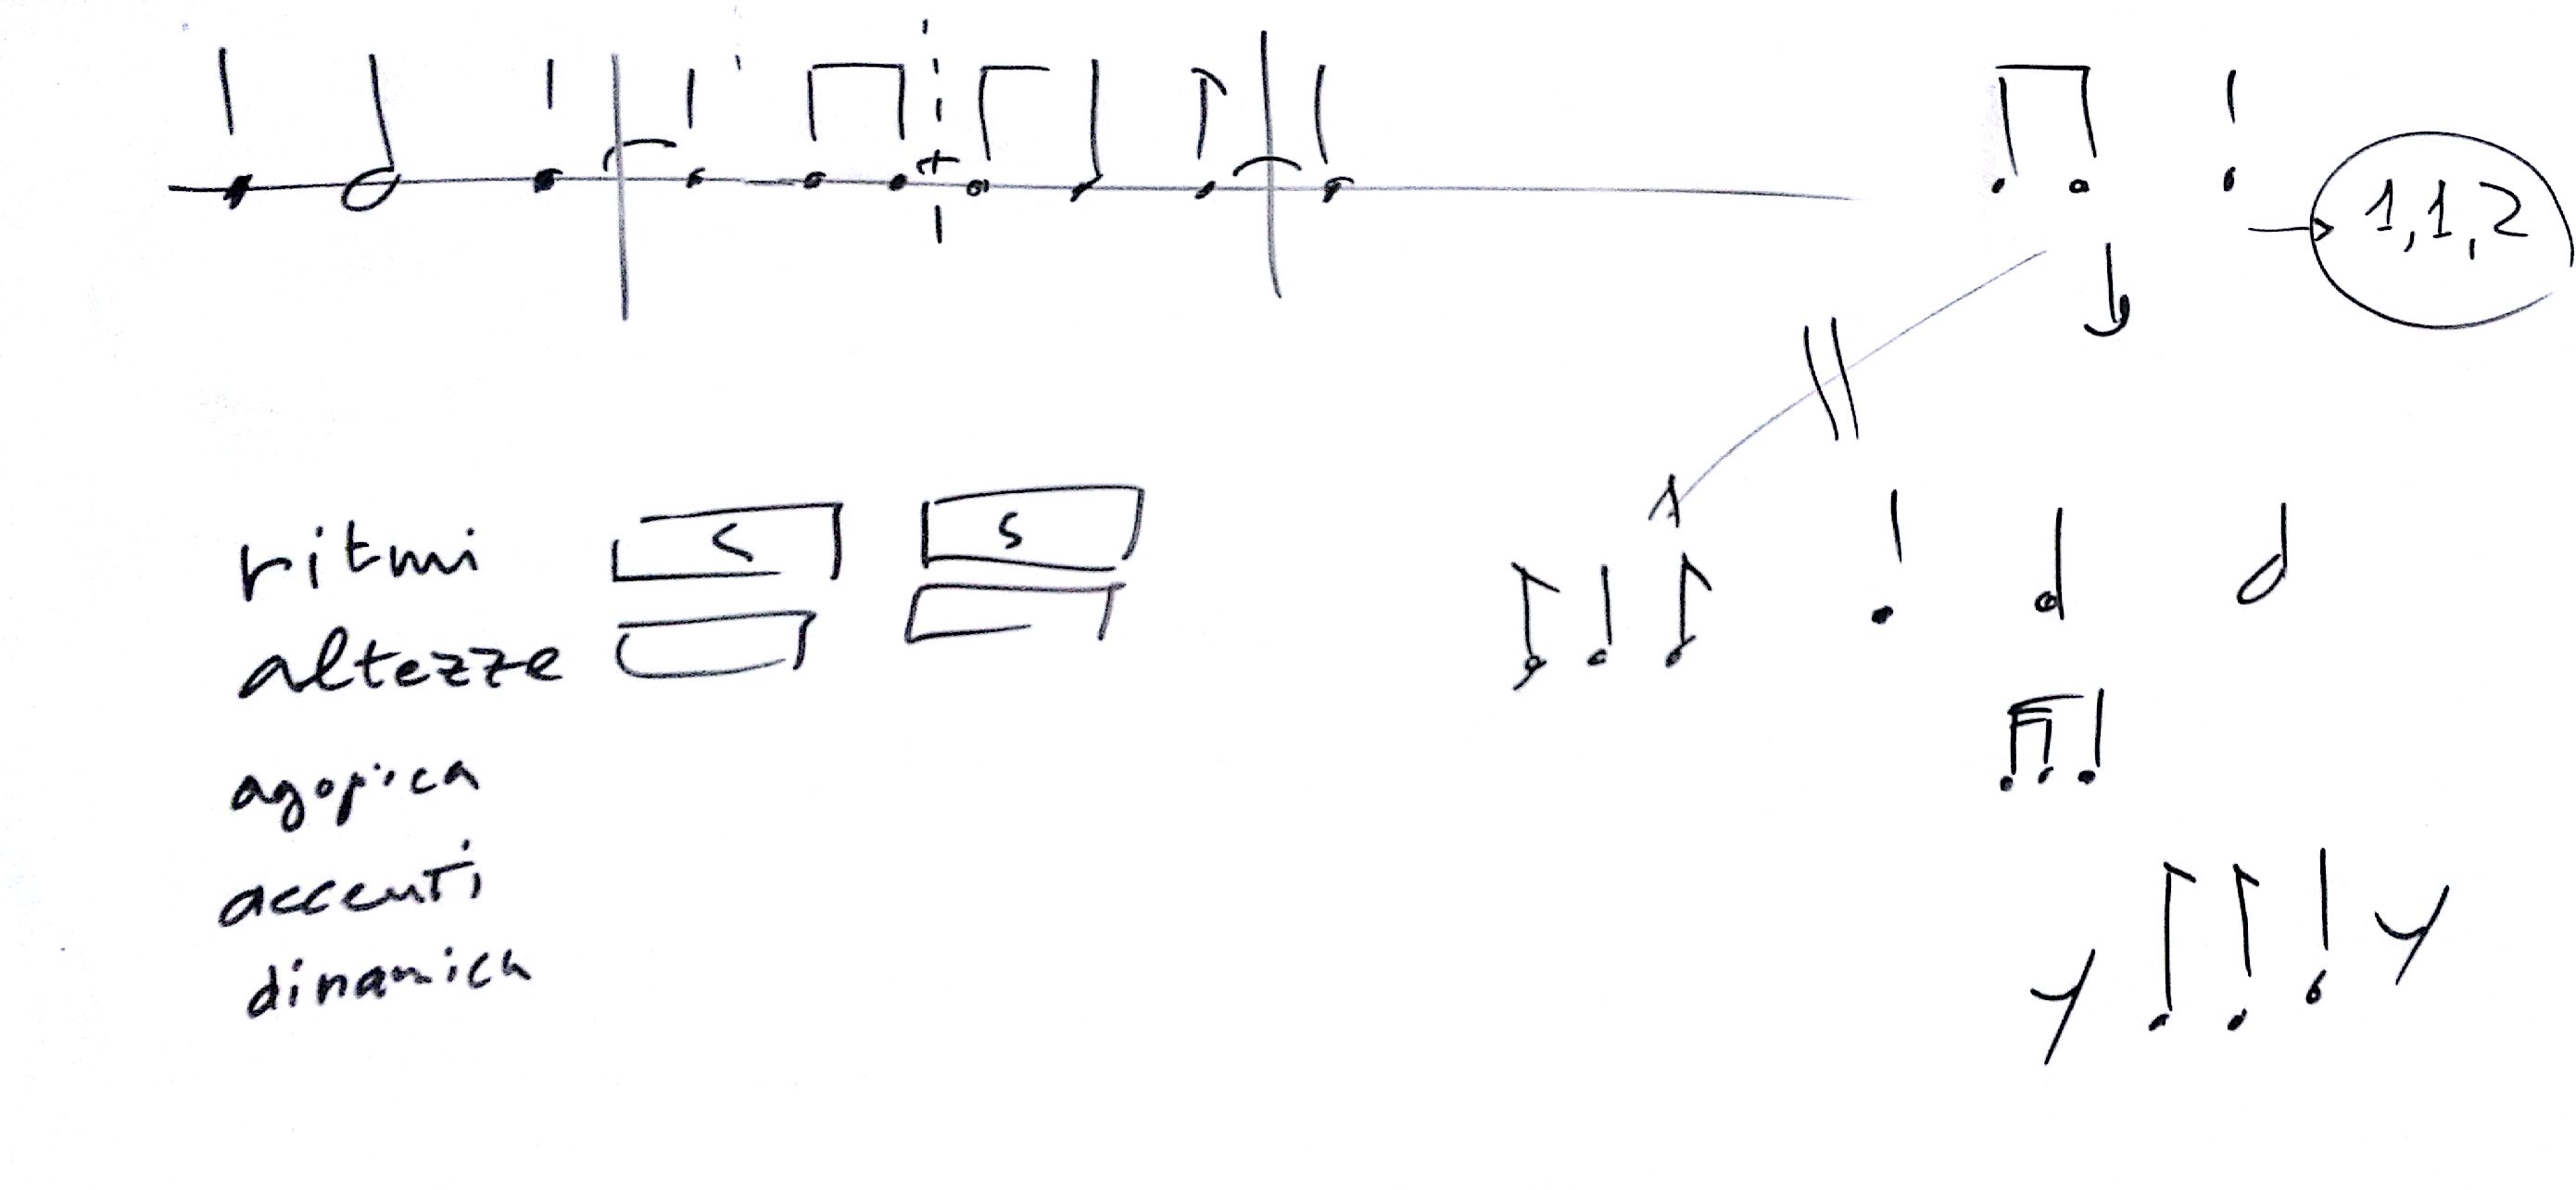 1,1,2
ritmi S S
altezze
agogica
accenti
dinamica